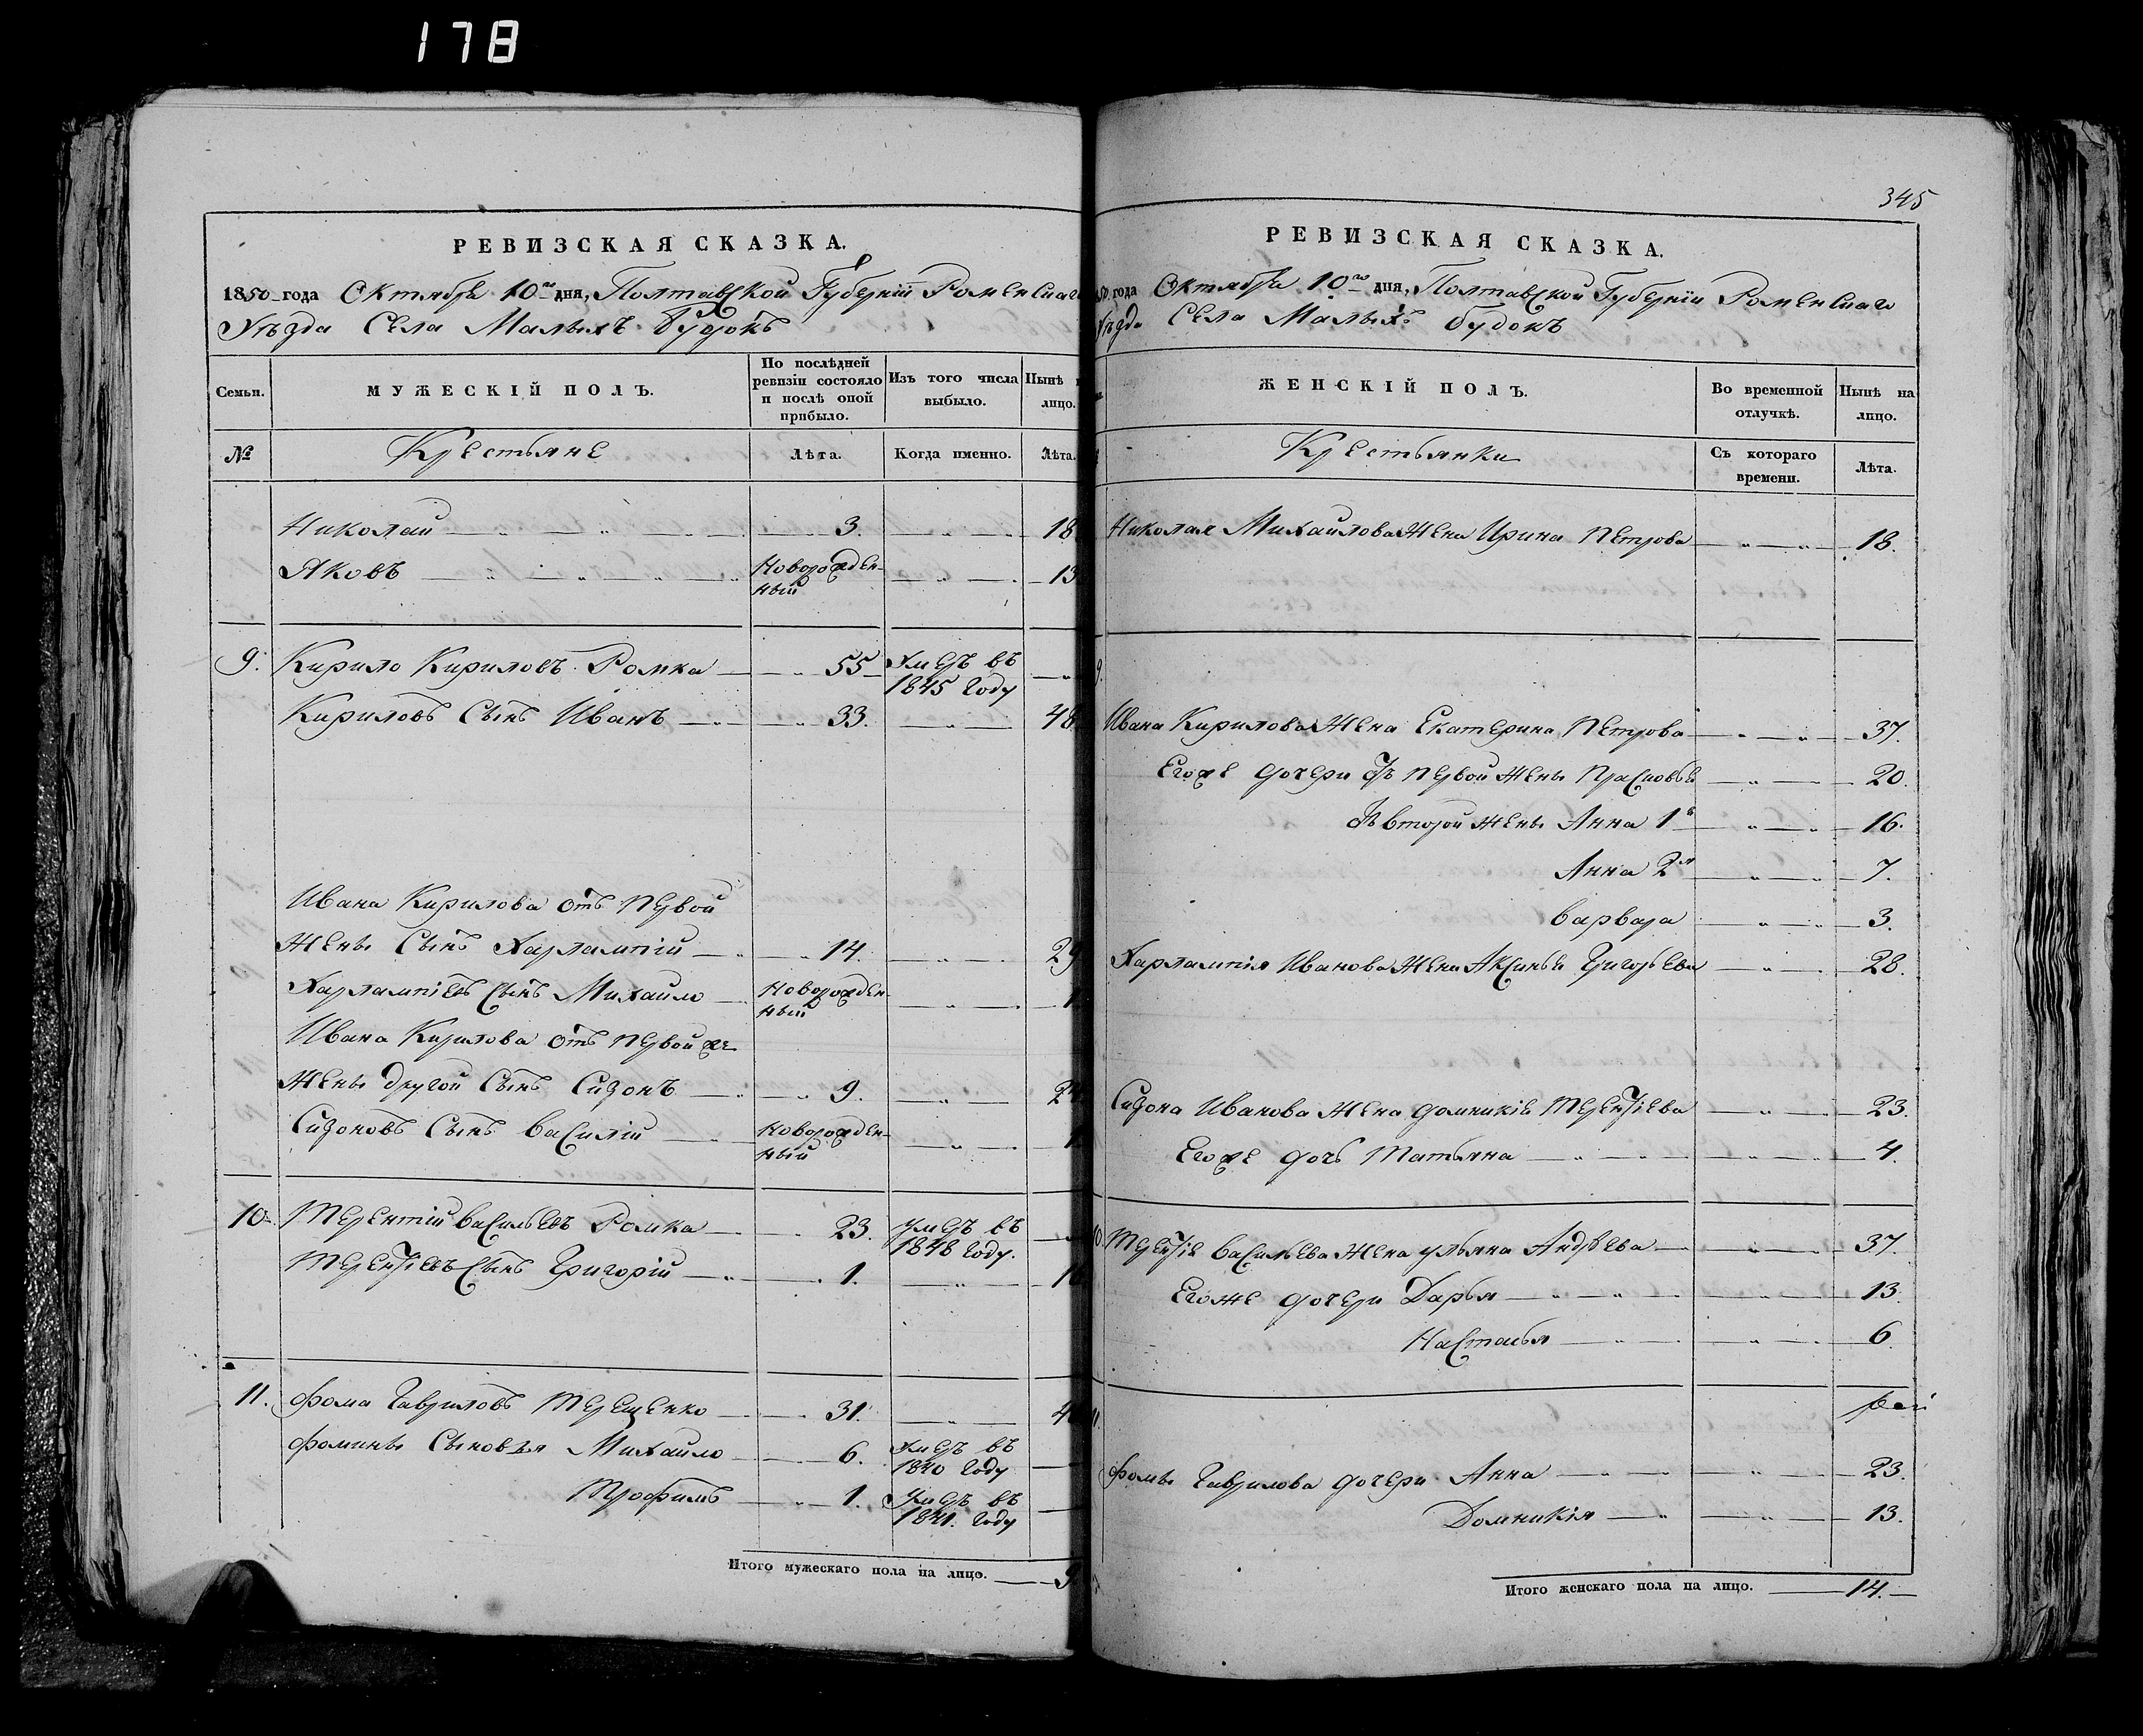 178
РЕВИЗСКАЯ СКАЗКА.
1850 года Октября 10го дня, Полтавской Губерніи Роменскаго
Уѣзда Села Малыхъ Будокъ
Семьи.
МУЖЕСКІЙ ПОЛЪ.
По послѣдней ревизіи состояло и послѣ оной прибыло.
Изъ того числа выбыло.
Нынѣ
лицо.
№
Крестьяне
Лѣта.
Когда именно.
Лѣта.
Николай 3. 18
Яковъ Новорожден-
ный 13
9. Кирило Кириловъ Ромка 55 Умеръ въ
1845 Году
Кириловъ Сынъ Иванъ 33. 48
Ивана Кирилова отъ первой
жены Сынъ Харлампій 14. 29
Харлампіевъ Сынъ Михайло Новорожден-
ный 1
Ивана Кирилова отъ первой же
жены другой Сынъ Сизонъ 9. 24
Сизоновъ Сынъ Василій Новорожден-
ный 1
10. Терентій Васильевъ Ромка 23. Умеръ въ
1848 Году.
Терентіевъ Сынъ Григорій 1. 1
11. Фома Гавриловъ Терещенко 31. 4
Фомины Сыновья Михайло 6. Умеръ въ
1840 Году
Трофимъ 1. Умеръ въ
1841. Году
Итого мужескаго пола на лицо. 9
345
РЕВИЗСКАЯ СКАЗКА.
50 года Октября 10го дня, Полтавской Губерніи Роменскаго
Уѣзда Села Малыхъ Будокъ
ЖЕНСКІЙ ПОЛЪ.
Во временной отлучкѣ.
Нынѣ на лицо.
Крестьянки
Съ котораго времени.
Лѣта.
Николая Михайлова Жена Ирина Петрова 18.
9.
Ивана Кирилова Жена Екатерина Петрова 37.
Егоже дочери отъ первой жены Прасковья 20.
отъ второй жены Анна 1я 16.
Анна 2я 7.
Варвара 3.
Харлампія Иванова Жена Аксинья Григорьева 28.
Сизона Иванова жена Домникія Терентіева 23.
Егоже дочь Татьяна 4.
0. Терентія Васильева жена Ульяна Андреева 37.
Егоже дочери Дарья 13.
Настасья 6.
Фомы Гаврилова дочери Анна 23.
Домникія 13.
Итого женскаго пола на лицо. 14.